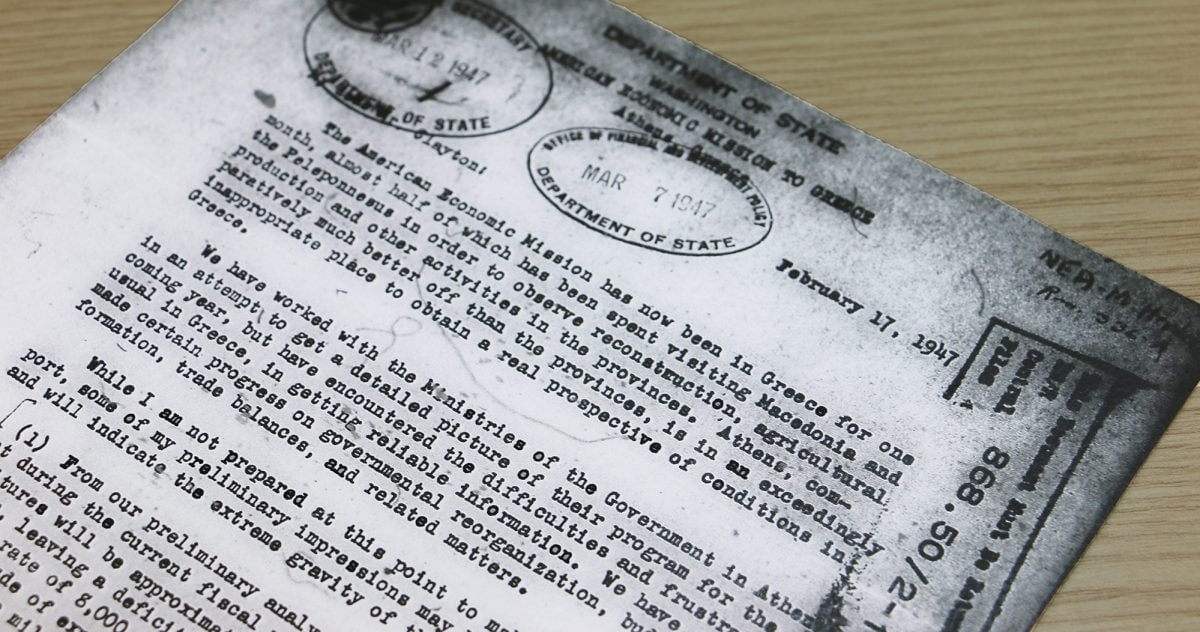 SECRETARY
MAR 12 1947
DEPARTMENT OF STATE
DEPARTMENT OF STATE
WASHINGTON
AMERICAN ECONOMIC MISSION TO GREECE
Athens,
OFFICE OF FINANCIAL AND DEVELOPMENT POLICY
MAR 7 1947
DEPARTMENT OF STATE
February 17, 1947
Clayton:
The American Economic Mission has now been in Greece for one
month, almost half of which has been spent visiting Macedonia and
the Peleponnesus in order to observe reconstruction, agricultural
production and other activities in the provinces. Athens, com-
paratively much better off than the provinces, is an exceedingly
inappropriate place to obtain a real prospective of conditions in
Greece.
We have worked with the Ministries of the Government in Athens
in an attempt to get a detailed picture of their program for the
coming year, but have encountered the difficulties and frustra
usual in Greece, in getting reliable information. We have
made certain progress on governmental reorganization, bud
formation, trade balances, and related matters.
While I am not prepared at this point to ma
port, some of my preliminary impressions may
and will indicate the extreme gravity of th
(1) From our preliminary analy
t during the current fiscal
tures will be approximat
leaving a deficit
rate of 8,000
de of exp
mil
NEA
Document Must Be
Central
Files
868.50/2-1